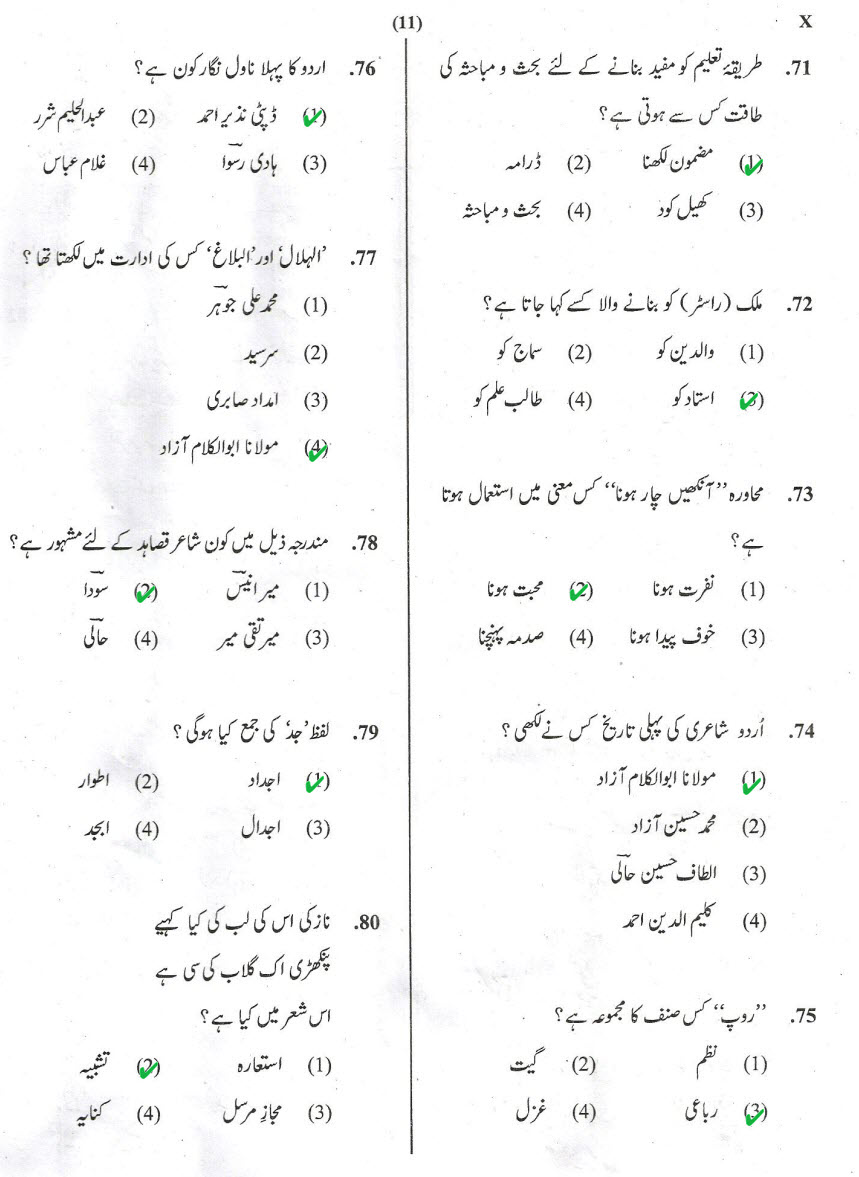 (11)
X
71. طریقۂ تعلیم کو مفید بنانے کے لئے بحث و مباحثہ کی
طاقت کس سے ہوتی ہے؟
(1) مضمون لکھنا (2) ڈرامہ
(3) کھیل کود (4) بحث و مباحثہ
72. ملک (راسٹر) کو بنانے والا کسے کہا جاتا ہے؟
(1) والدین کو (2) سماج کو
(3) استاد کو (4) طالب علم کو
73. محاورہ ’’آنکھیں چار ہونا‘‘ کس معنی میں استعمال ہوتا
ہے؟
(1) نفرت ہونا (2) محبت ہونا
(3) خوف پیدا ہونا (4) صدمہ پہنچنا
74. اُردو شاعری کی پہلی تاریخ کس نے لکھی؟
(1) مولانا ابوالکلام آزاد
(2) محمد حسین آزاد
(3) الطاف حسین حالؔی
(4) کلیم الدین احمد
75. ’’روپ‘‘ کس صنف کا مجموعہ ہے؟
(1) نظم (2) گیت
(3) رباعی (4) غزل
76. اردو کا پہلا ناول نگار کون ہے؟
(1) ڈپٹی نذیر احمد (2) عبدالحلیم شرر
(3) ہادی رسوؔا (4) غلام عباس
77. ’الہلال‘ اور ’البلاغ‘ کس کی ادارت میں لکھتا تھا؟
(1) محمد علی جوہؔر
(2) سرسید
(3) امداد صابری
(4) مولانا ابوالکلام آزاد
78. مندرجہ ذیل میں کون شاعر قصاہد کے لئے مشہور ہے؟
(1) میر انیسؔ (2) سوؔدا
(3) میر تقی میر (4) حالؔی
79. لفظ ’جد‘ کی جمع کیا ہوگی؟
(1) اجداد (2) اطوار
(3) اجدال (4) ابجد
80. نازکی اس کی لب کی کیا کہیے
پنکھڑی اک گلاب کی سی ہے
اس شعر میں کیا ہے؟
(1) استعارہ (2) تشبیہ
(3) مجازِ مرسل (4) کنایہ